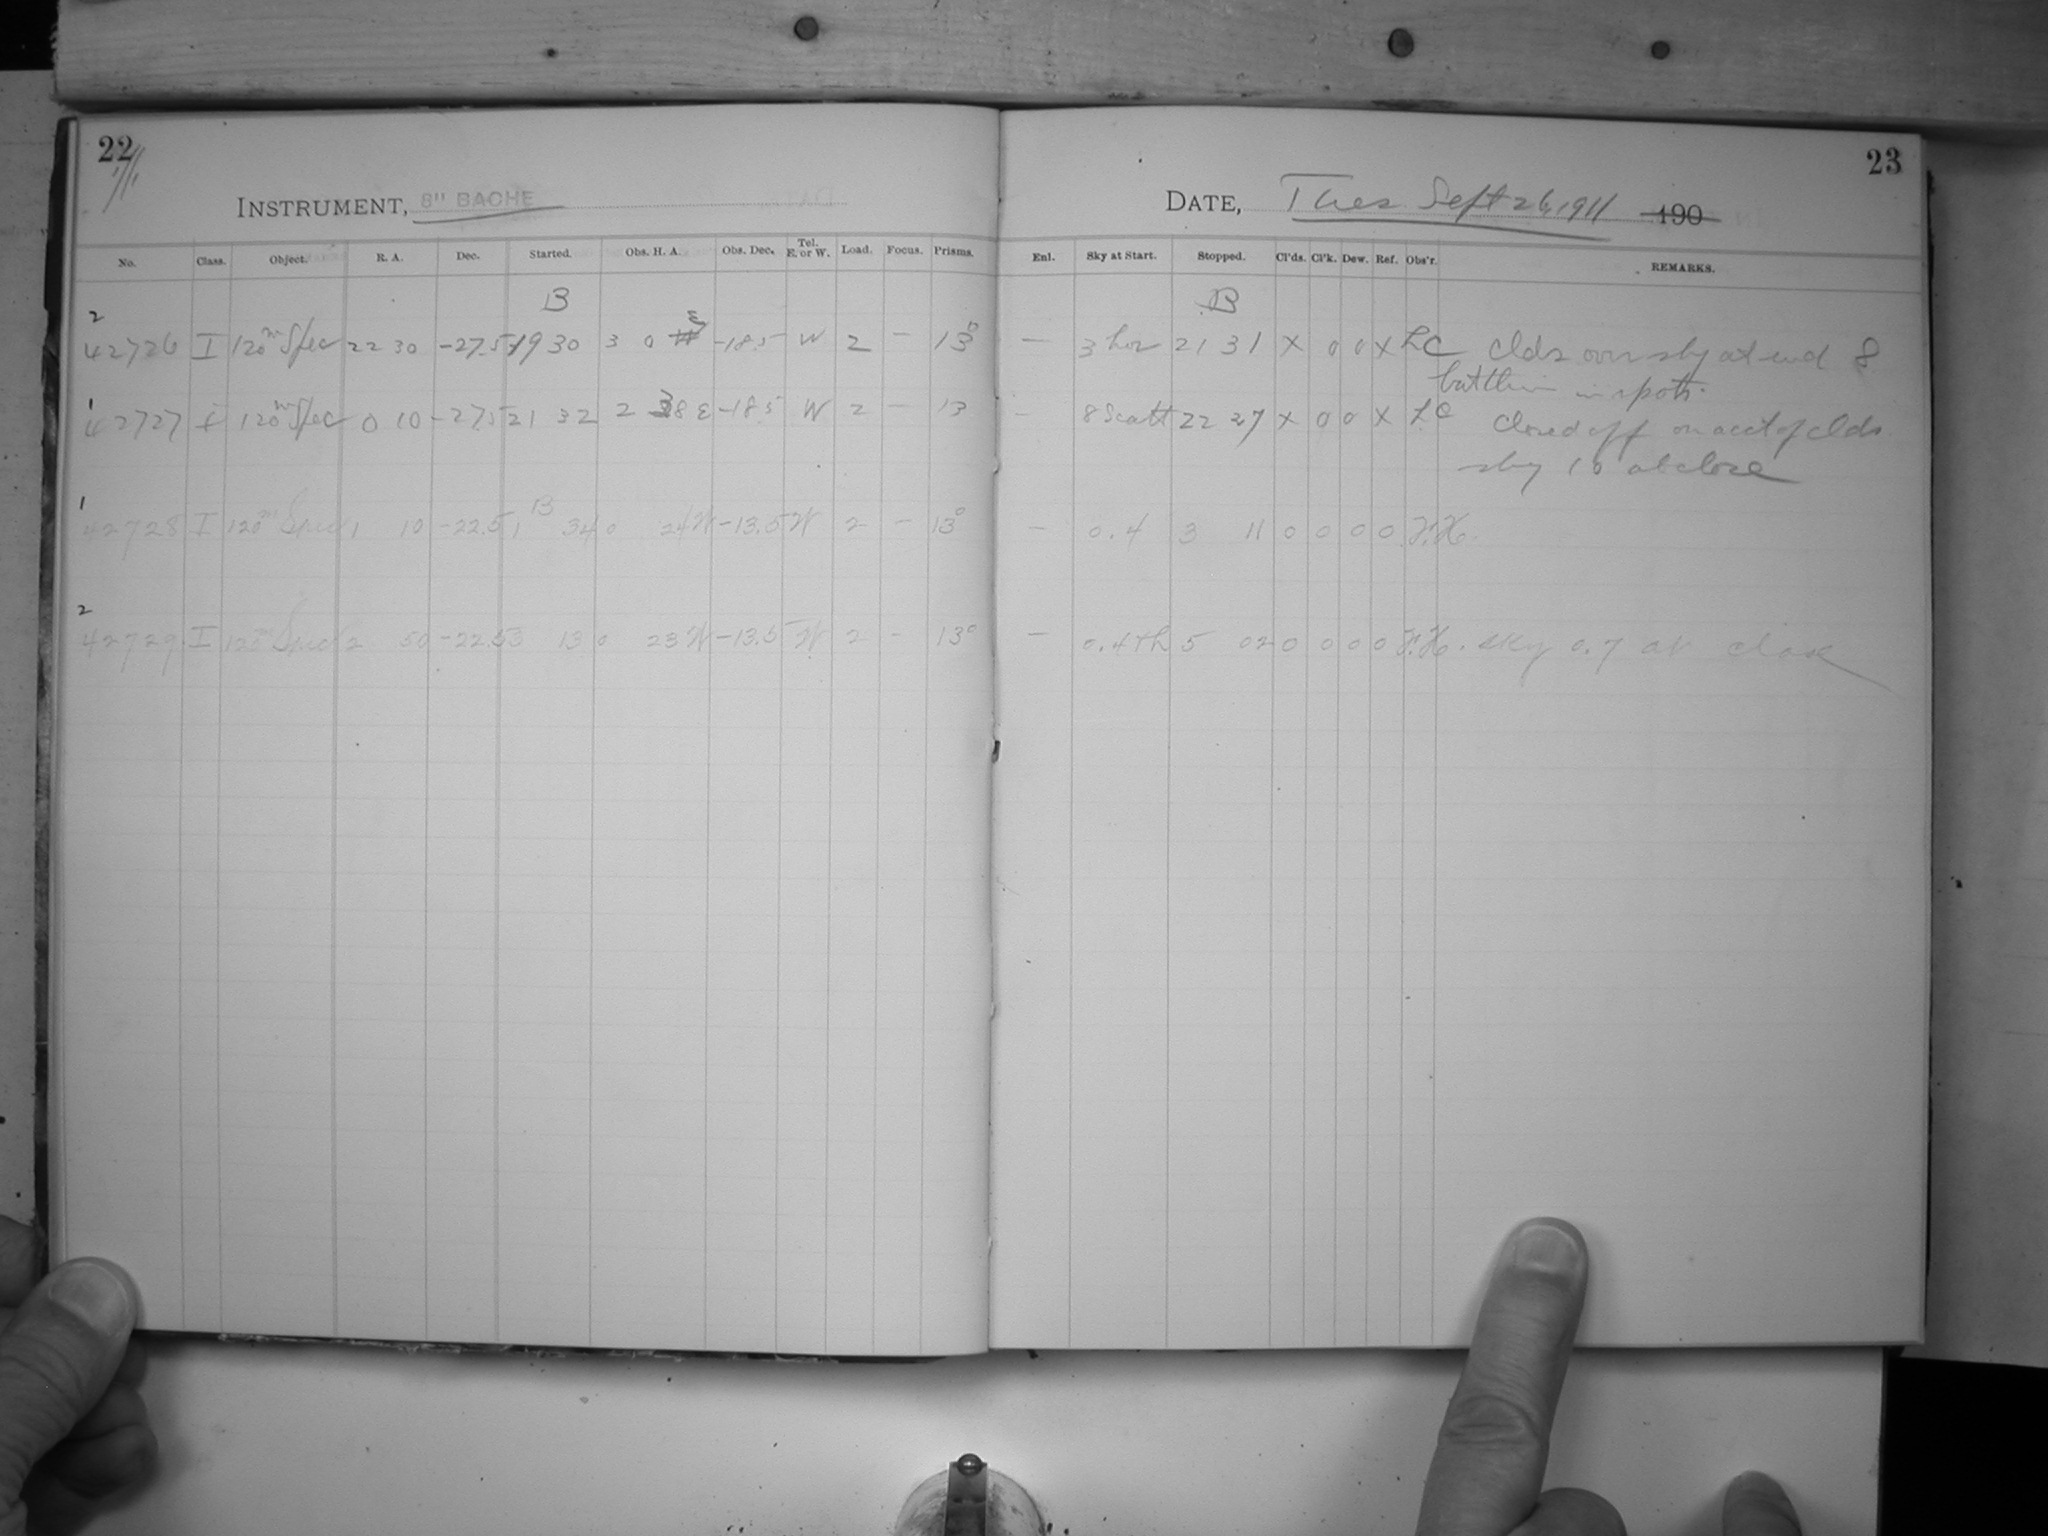 22
23
INSTRUMENT, 8" BACHE
DATE, Tues Sept 26, 1911 190
No. Class. Object. R. A. Dec. Started. Obs. H. A. Obs. Dec. Tel. E. or W. Load. Focus. Prisms. Enl. Sky at Start. Stopped. Cl'ds. Cl'k. Dew. Ref. Obs'r. REMARKS.
B B
2
42726 I 120m Spec 22 30 -27.5 19 30 3 0 E -18.5 W 2 – 13° – 3 hor 21 31 X 0 0 X LC Clds over sky at end 8
but thin in spots.
1
42727 I 120m Spec 0 10 -27.5 21 32 2 38 E -18.5 W 2 – 13 – 8 Scatt 22 27 X 0 0 X LC Closed off on acct of clds
sky 10 at close
B
1
42728 I 120m Spec 1 10 -22.5 1 34 0 24 W -13.5 W 2 – 13° – 0.4 3 11 0 0 0 0 F.H.
2
42729 I 120m Spec 2 50 -22.5 3 13 0 23 W -13.5 W 2 – 13° – 0.4 th 5 02 0 0 0 0 F.H. sky 0.7 at close